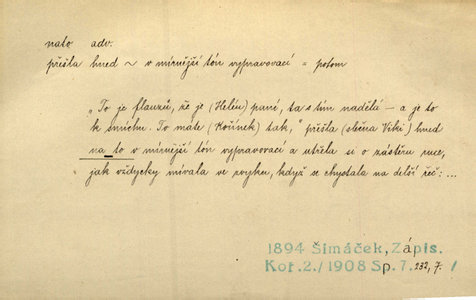 nato adv.
přešla hned ~ v mírnější tón vypravovací = potom
„To je flauzů, že je (Helen) paní, ta s tím nadělá – a je to
k smíchu. To máte (Kořínek) tak,“ přešla (slečna Viki) hned
na to v mírnější tón vypravovací a utřela si o zástěru ruce,
jak vždycky mívala ve zvyku, když se chystala na delší řeč: ...
1894 Šimáček, Zápis.
Koř. 2./1908 Sp. 7. 232, 7. /